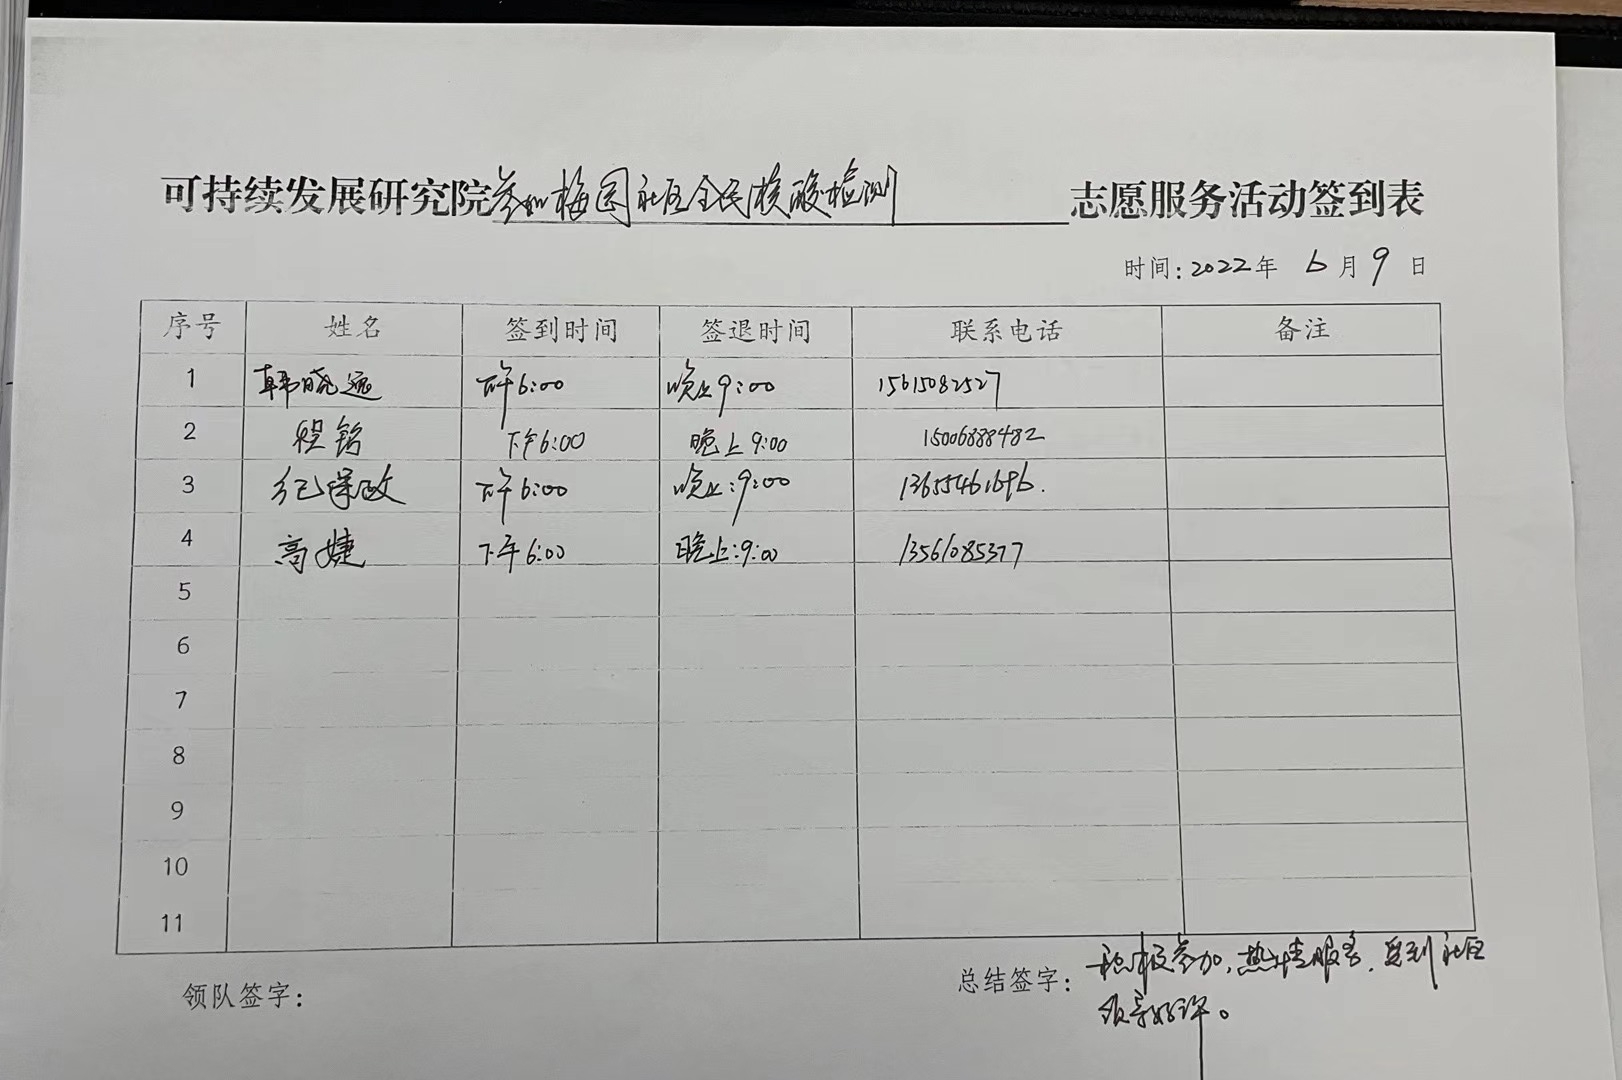 可持续发展研究院参加梅园社区全民核酸检测志愿服务活动签到表
时间：2022年 6月9日
序号 姓名 签到时间 签退时间 联系电话 备注
1 韩晓遥 下午6:00 晚上9:00 15615082527
2 程铭 下午6:00 晚上9:00 15006888482
3 纪保政 下午6:00 晚上:9:00 13655461696.
4 高婕 下午6:00 晚上:9:00 13561085377
5
6
7
8
9
10
11
领队签字： 总结签字：积极参加，热情服务，受到社区
领导好评。